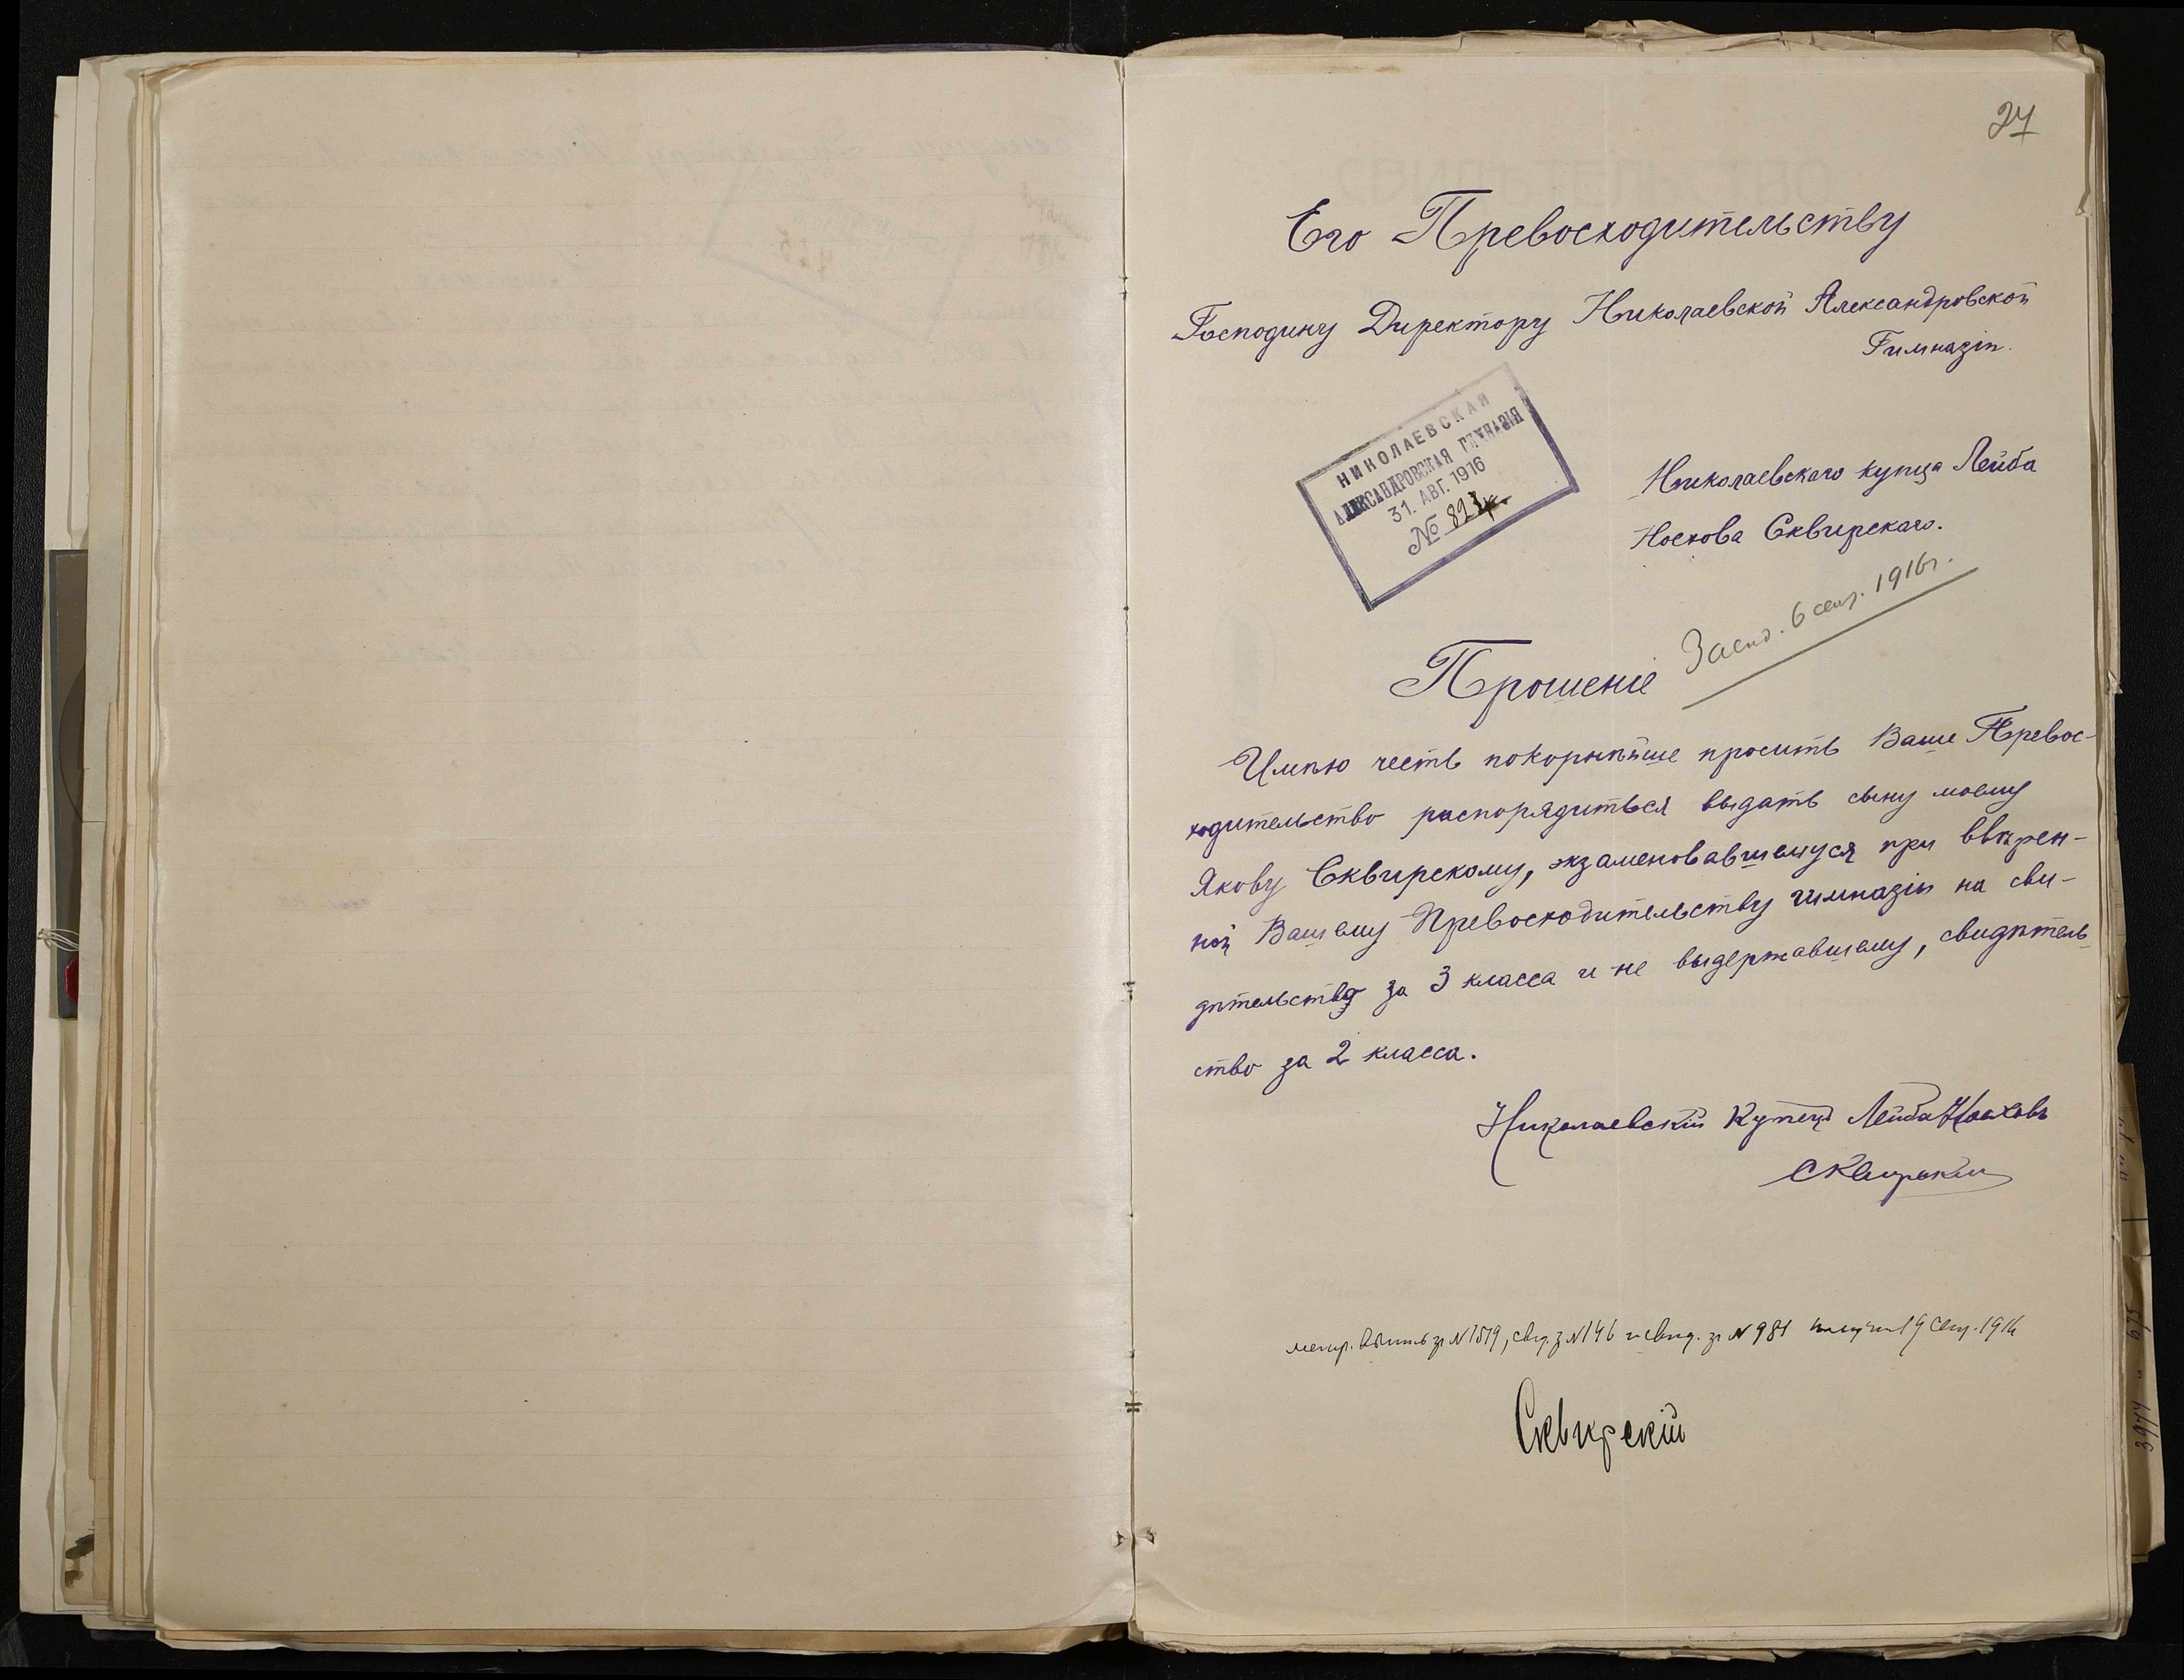 27
Его Превосходительству
Господину Директору Николаевской Александровской
Гимназіи.
НИКОЛАЕВСКАЯ
АЛЕКСАНДРОВСКАЯ ГИМНАЗІЯ
31. АВГ. 1916
№ 823
Николаевскаго купца Лейба
Носхова Сквирскаго.
6 сент. 1916 г.
Прошеніе
Имѣю честь покорнѣйше просить Ваше Превос-
ходительство распорядиться выдать сыну моему
Якову Сквирскому, экзаменовавшемуся при ввѣрен-
ной Вашему Превосходительству гимназіи на сви-
дѣтельство за 3 класса и не выдержавшему, свидѣтель-
ство за 2 класса.
Николаевскій Купецъ Лейба Носховъ
Сквирскій
метр. выпись за № 1519, свид. за № 146 и свид. за № 981 получилъ 19 Сент. 1916
Сквирскій